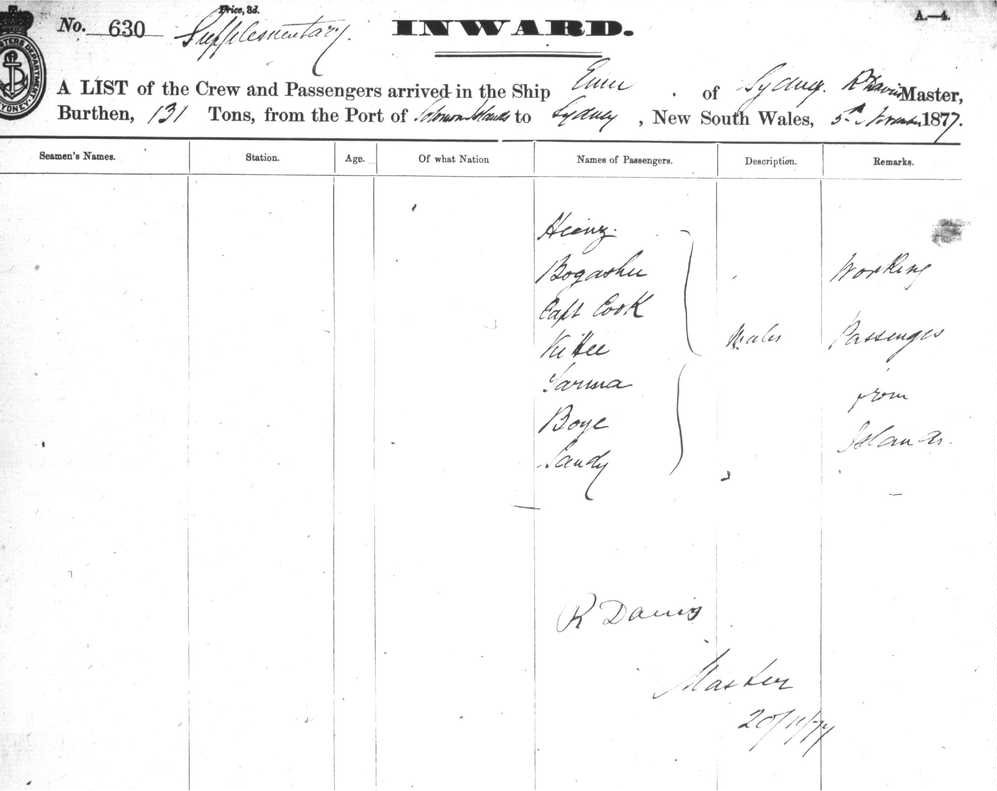 Price, 3d.
No. 630 Supplementary. INWARD. A.—4.
A LIST of the Crew and Passengers arrived in the Ship of Sydney. R Davis Master,
Burthen, 131 Tons, from the Port of Solomon Islands to Sydney, New South Wales, 5th November 1877.
Seamen's Names. Station. Age. Of what Nation Names of Passengers. Description. Remarks.
Heinz
Bogashu Working
Capt Cook
Males Passenges
Tarma
from
Boye
Islands.
Sandy
R Davis
Master
20/11/77